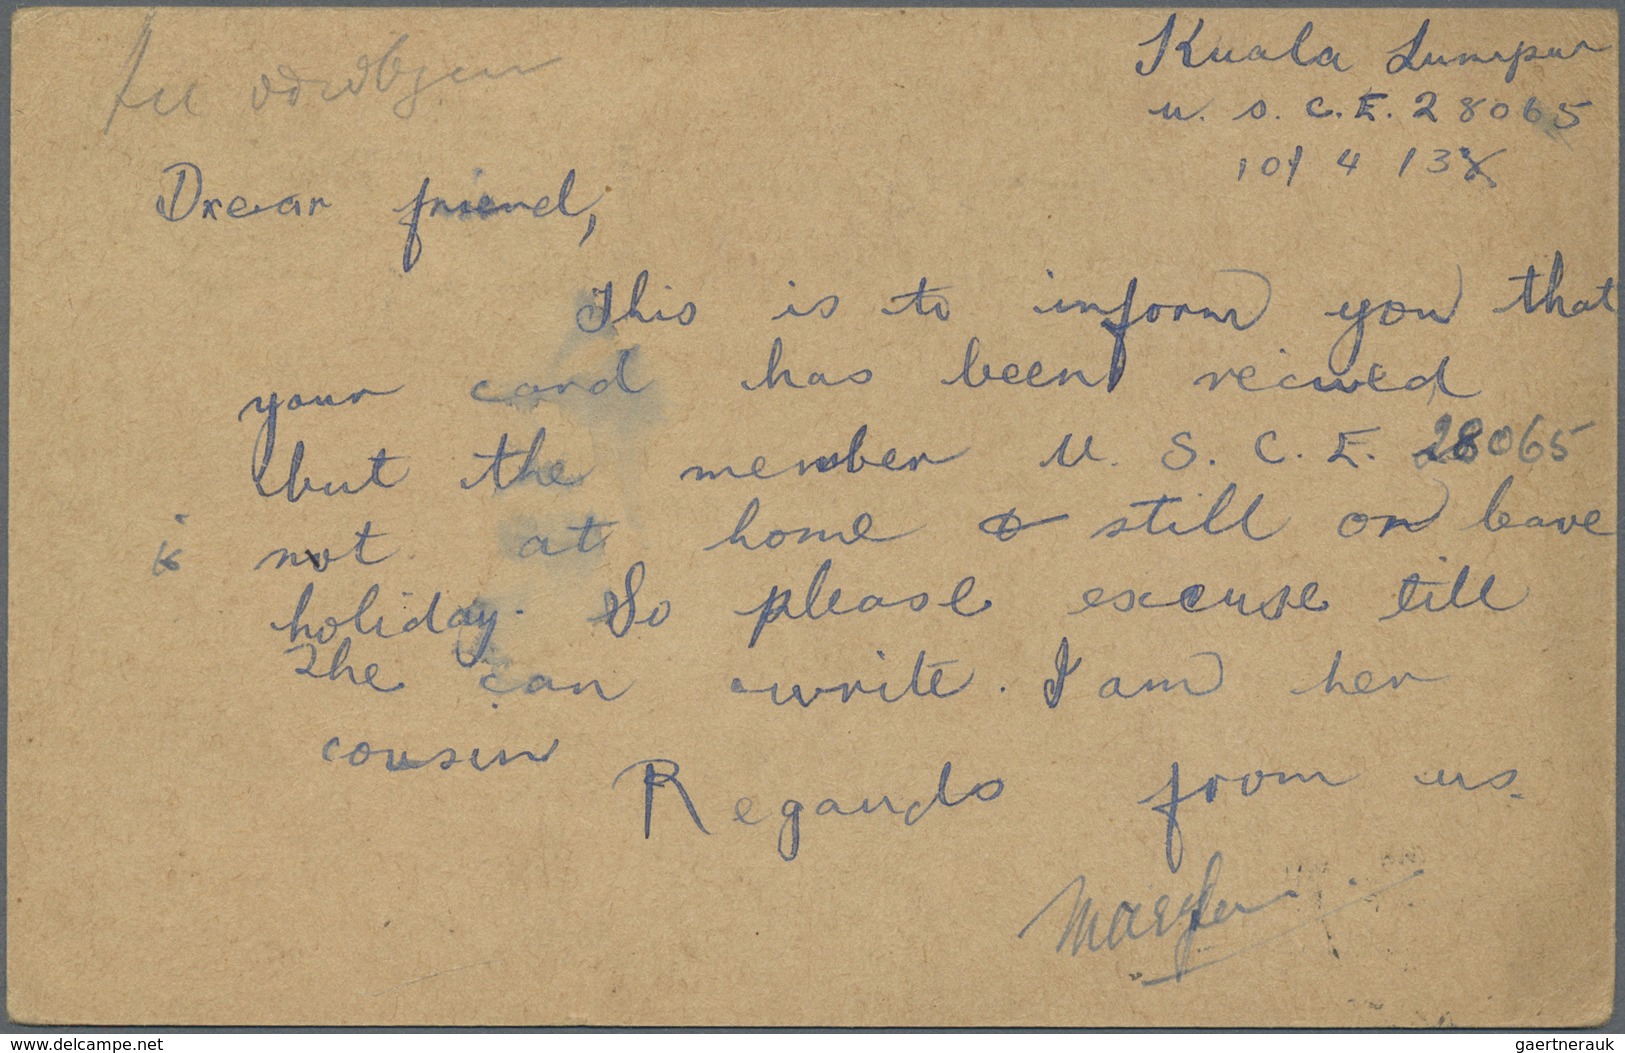 Kuala Lumpur
U. S. C. E. 28065
10/ 4 /38
Drear friend,
This is to inform you that
your card has been recived
but the member U. S. C. E. 28065
is not at home & still on leave
holiday. So please excuse till
She can write. I am her
cousin
Regards from us.
www.delcampe.net
gaertnerauk